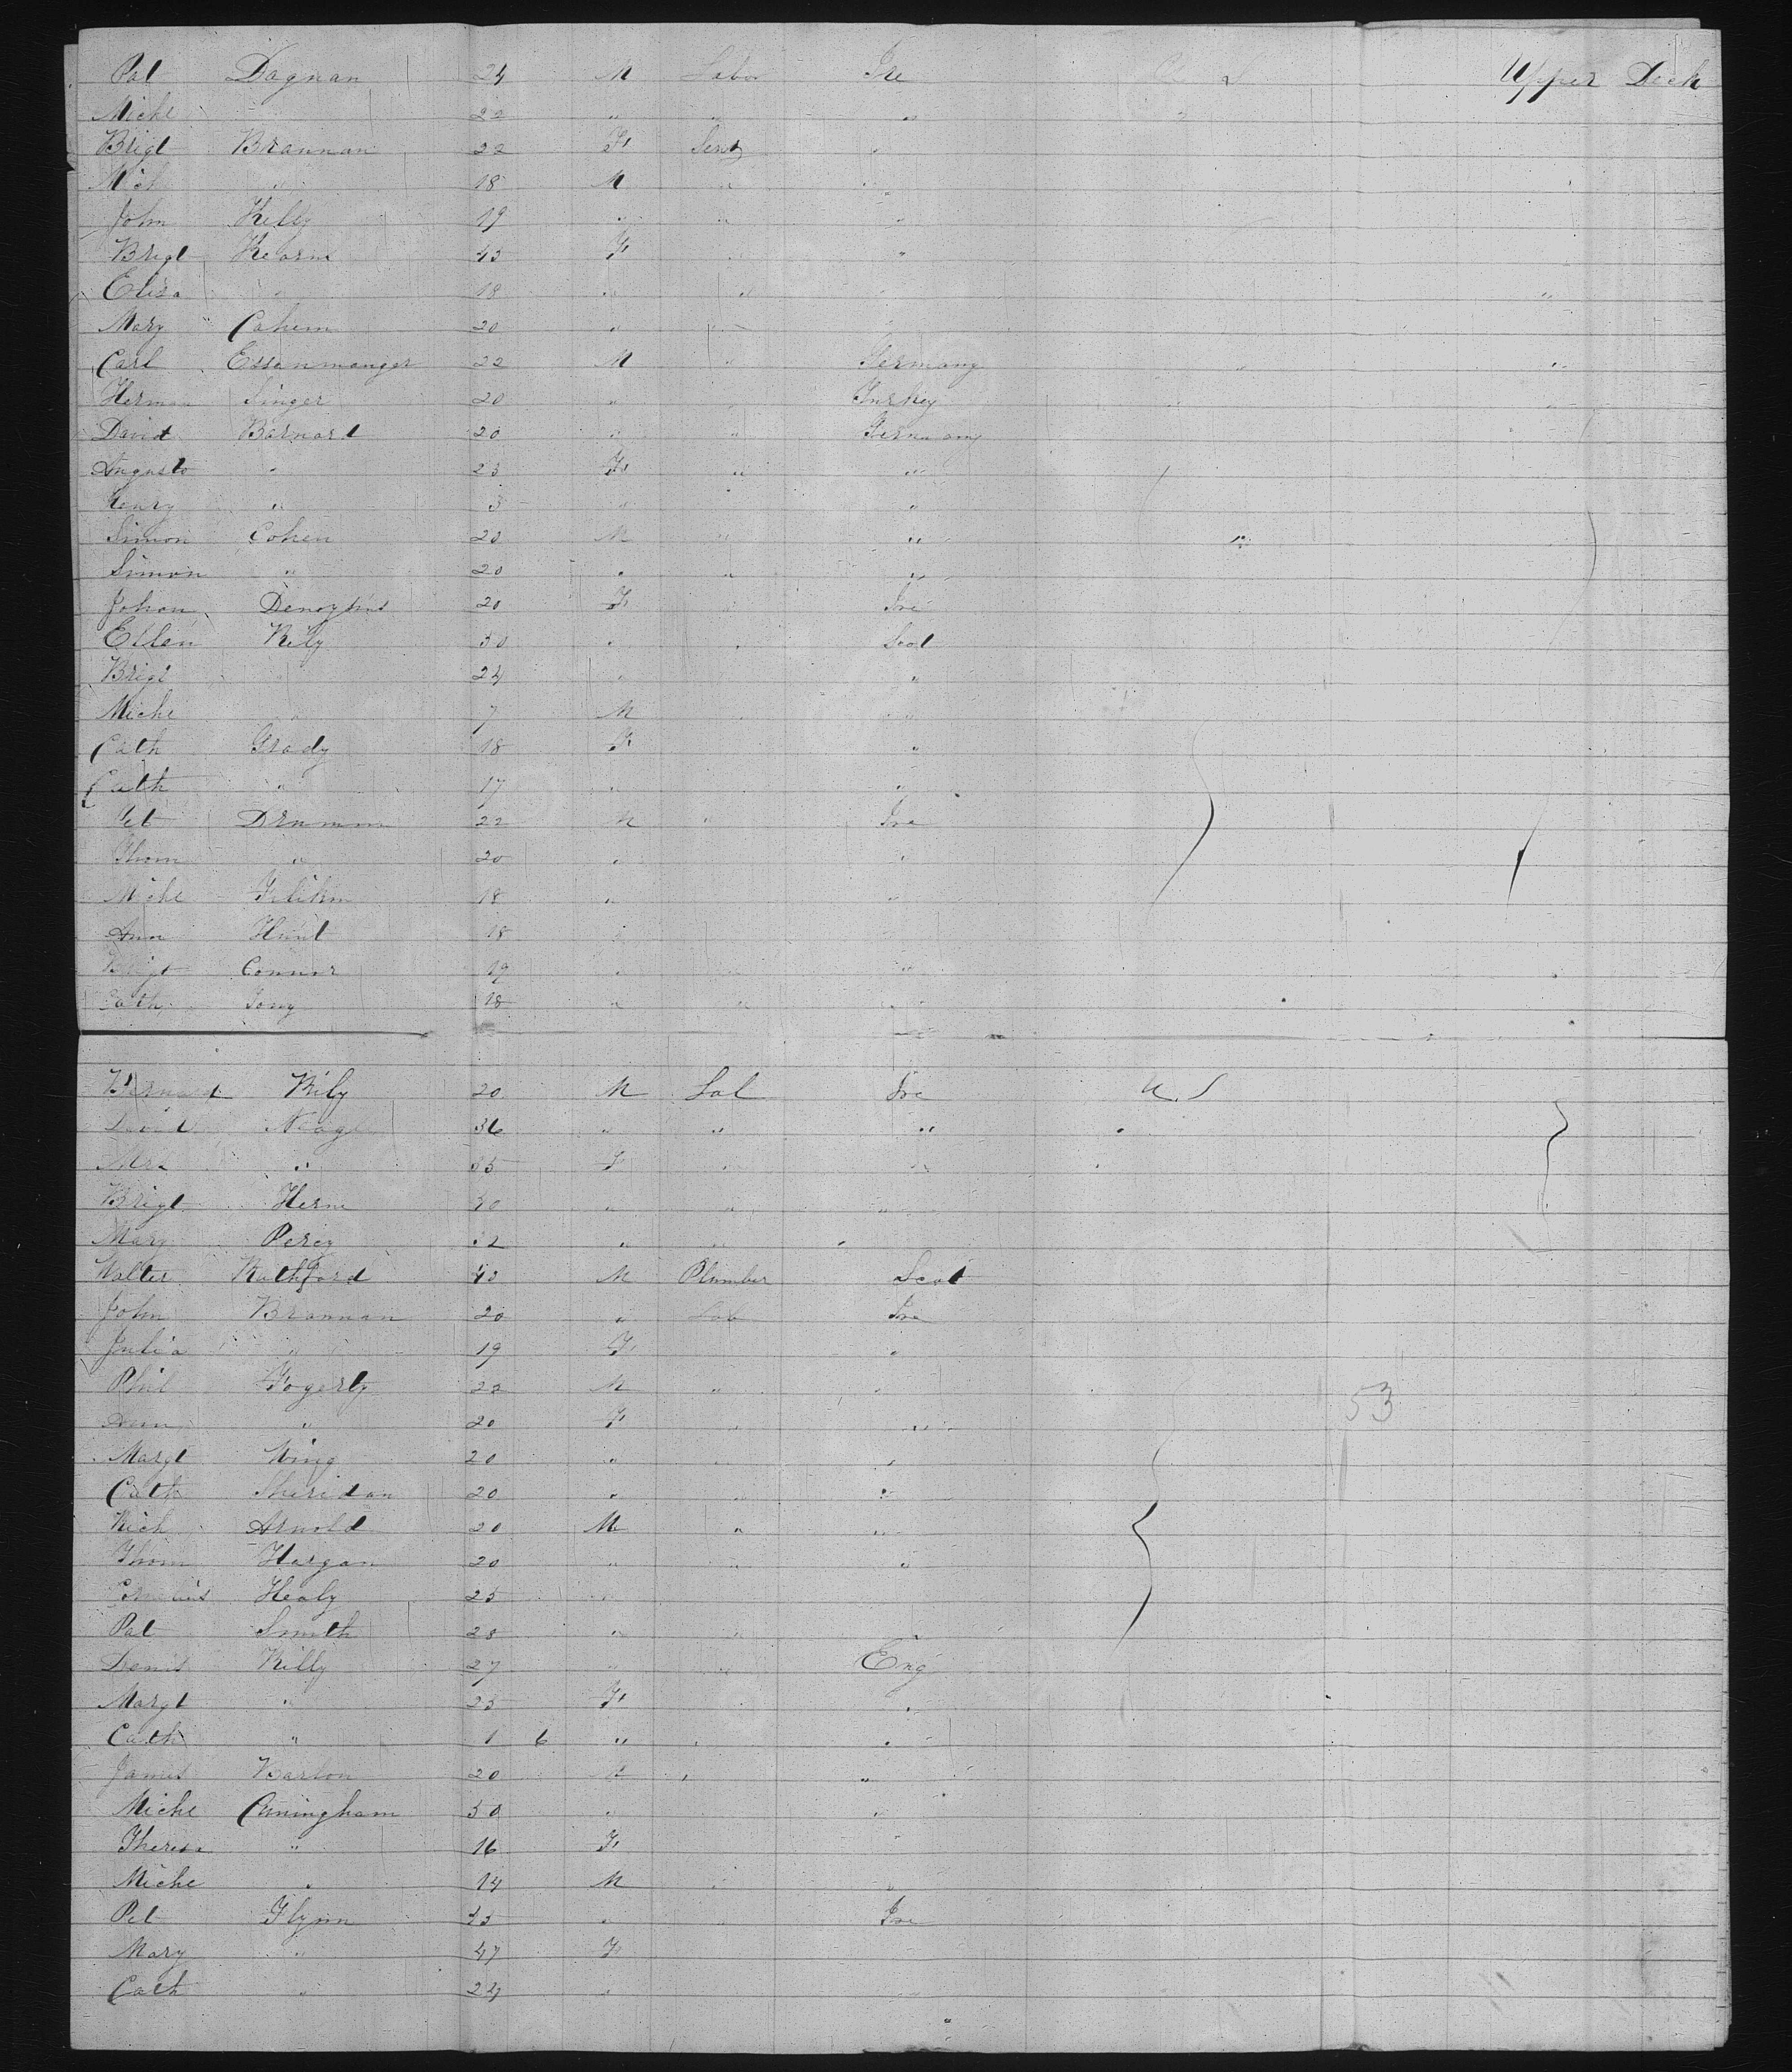 Pat Dagnan 24 M Labor Ire U S Upper Deck
Michl 22 " " "
Brigt Brannan 22 F Servt "
Mich " 18 M " "
John Kelly 19 " " "
Brigt Kearns 45 F "
Eliza " 18 " " "
Mary Cahern 20 "
Carl Essanmanger 22 M " Germany " "
Herman Singer 20 " " Turkey "
David Barnard 20 " " Germany
Augusta " 23 F " "
Henry " 3 " " "
Simon Cohen 20 M " " "
Simon " 20 " " "
Johan 20 F " Ire
Ellen Rily 30 " " Scot
Brigt " 24 " "
Michl " 7 M "
Cath Grady 18 F "
Cath " 17 " "
Pet Drumm 22 M " Ire
Thom " 20 " "
Michl 18 " "
Ann Hunt 18 "
Brigt Connor 19 " "
Cath 18 " " "
Bernard Rily 20 M Lab Ire U. S
David 36 " " " "
Mrs " 35 F " " "
Brigt Herne 40 " " "
Mary Percy 32 " " "
Walter Rathford 40 M Plumber Scot
John Brannan 20 " Lab Ire
Julia " 19 F "
Phil Fogerty 22 M " "
Ann " 20 F " "
Margt King 20 " " "
Cath Sheridan 20 " " "
Rich Arnold 20 M " "
Thom Hargan 20 " " "
Cornelius Healy 25 "
Pat Smith 28 " " "
Denis Killy 27 " " Eng
Margt " 25 F " "
Cath " 1 6 " " "
James Barlon 20 M " "
Michl Cuningham 50 " "
Theresa " 16 F "
Michl " 14 M " "
Pet Flynn 45 " " Ire
Mary " 47 F
Cath " 24 "
53